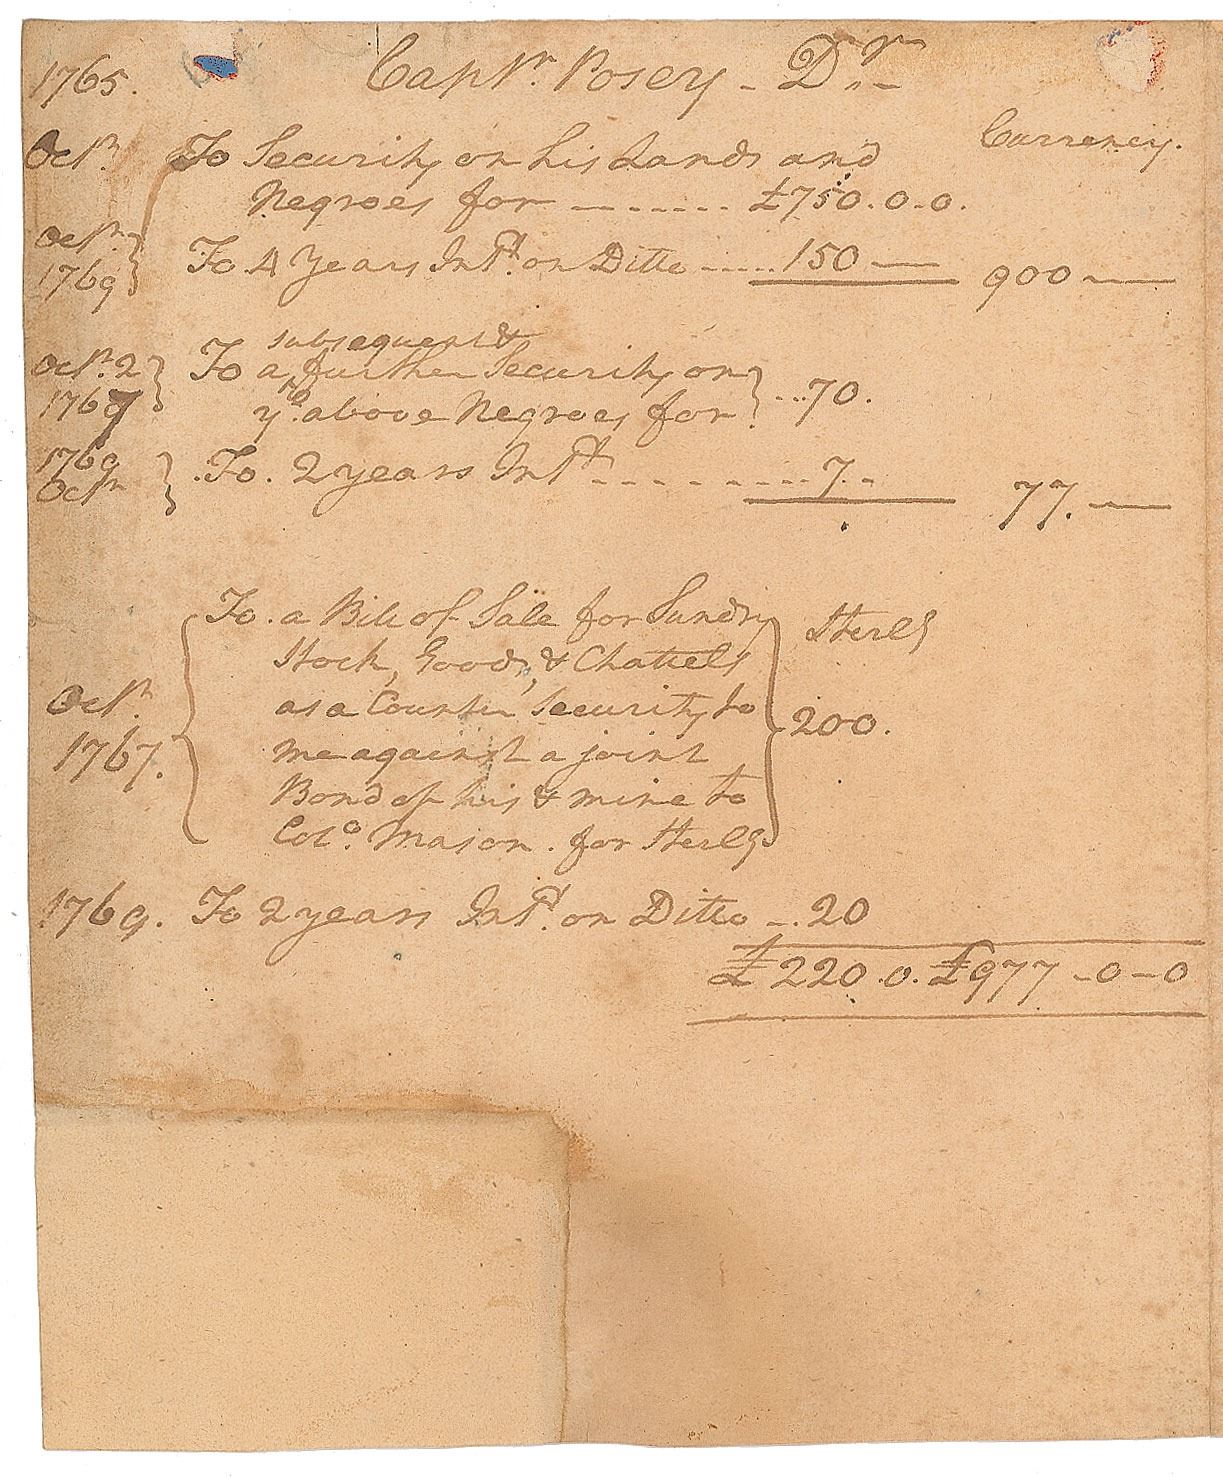 1765. Capt.n Posey - D.r
Currency.
Oct.r To Security on his Lands and
Negroes for -------- £750.0.0.
Oct.r 1769 } To 4 Years Int.t on Ditto ..... 150 — 900 —
subsequent &
Oct.r 2 To a further Security on
1767 } y.e above Negroes for } ... 70.
1769 Oct.r } To. 2 years Int.t - - - - - - - 7. - 77. —
To. a Bill of Sale for Sundry Sterlg
Stock, Goods, & Chattels
Oct.r as a Counter Security to 200.
1767. me against a joint
Bond of his & mine to
Col.o Mason. for Sterlg
1769. To 2 years Int.t on Ditto - .. 20
£220.0. £977-0-0